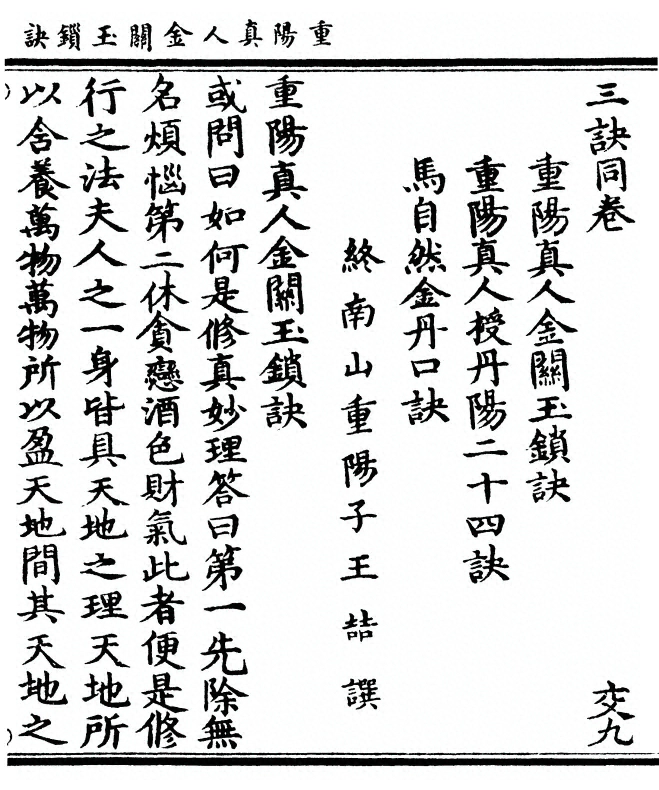 重陽真人金關玉鎖訣
三訣同卷
交九
重陽真人金關玉鎖訣
重陽真人授丹陽二十四訣
馬自然金丹口訣
終南山重陽子王嚞撰
重陽真人金關玉鎖訣
或問曰如何是修真妙理答曰第一先除無
名煩惱第二休貪戀酒色財氣此者便是修
行之法夫人之一身皆具天地之理天地所
以含養萬物萬物所以盈天地間其天地之